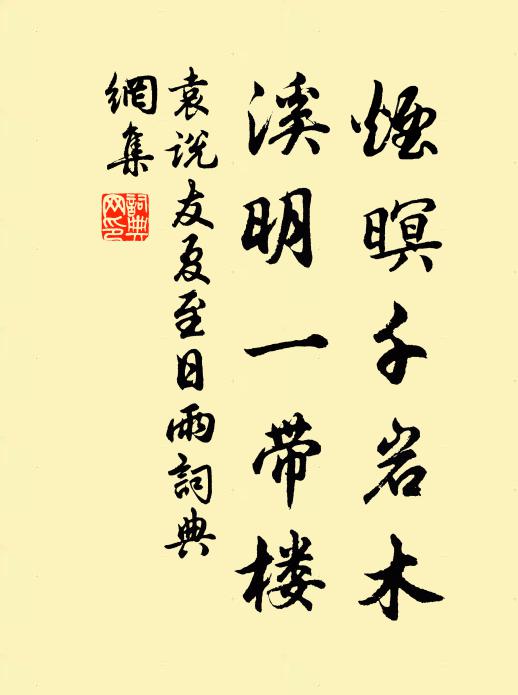 煙暝千岩木
溪明一带楼
袁说友夏至日雨詞典
網集
詞典
网印